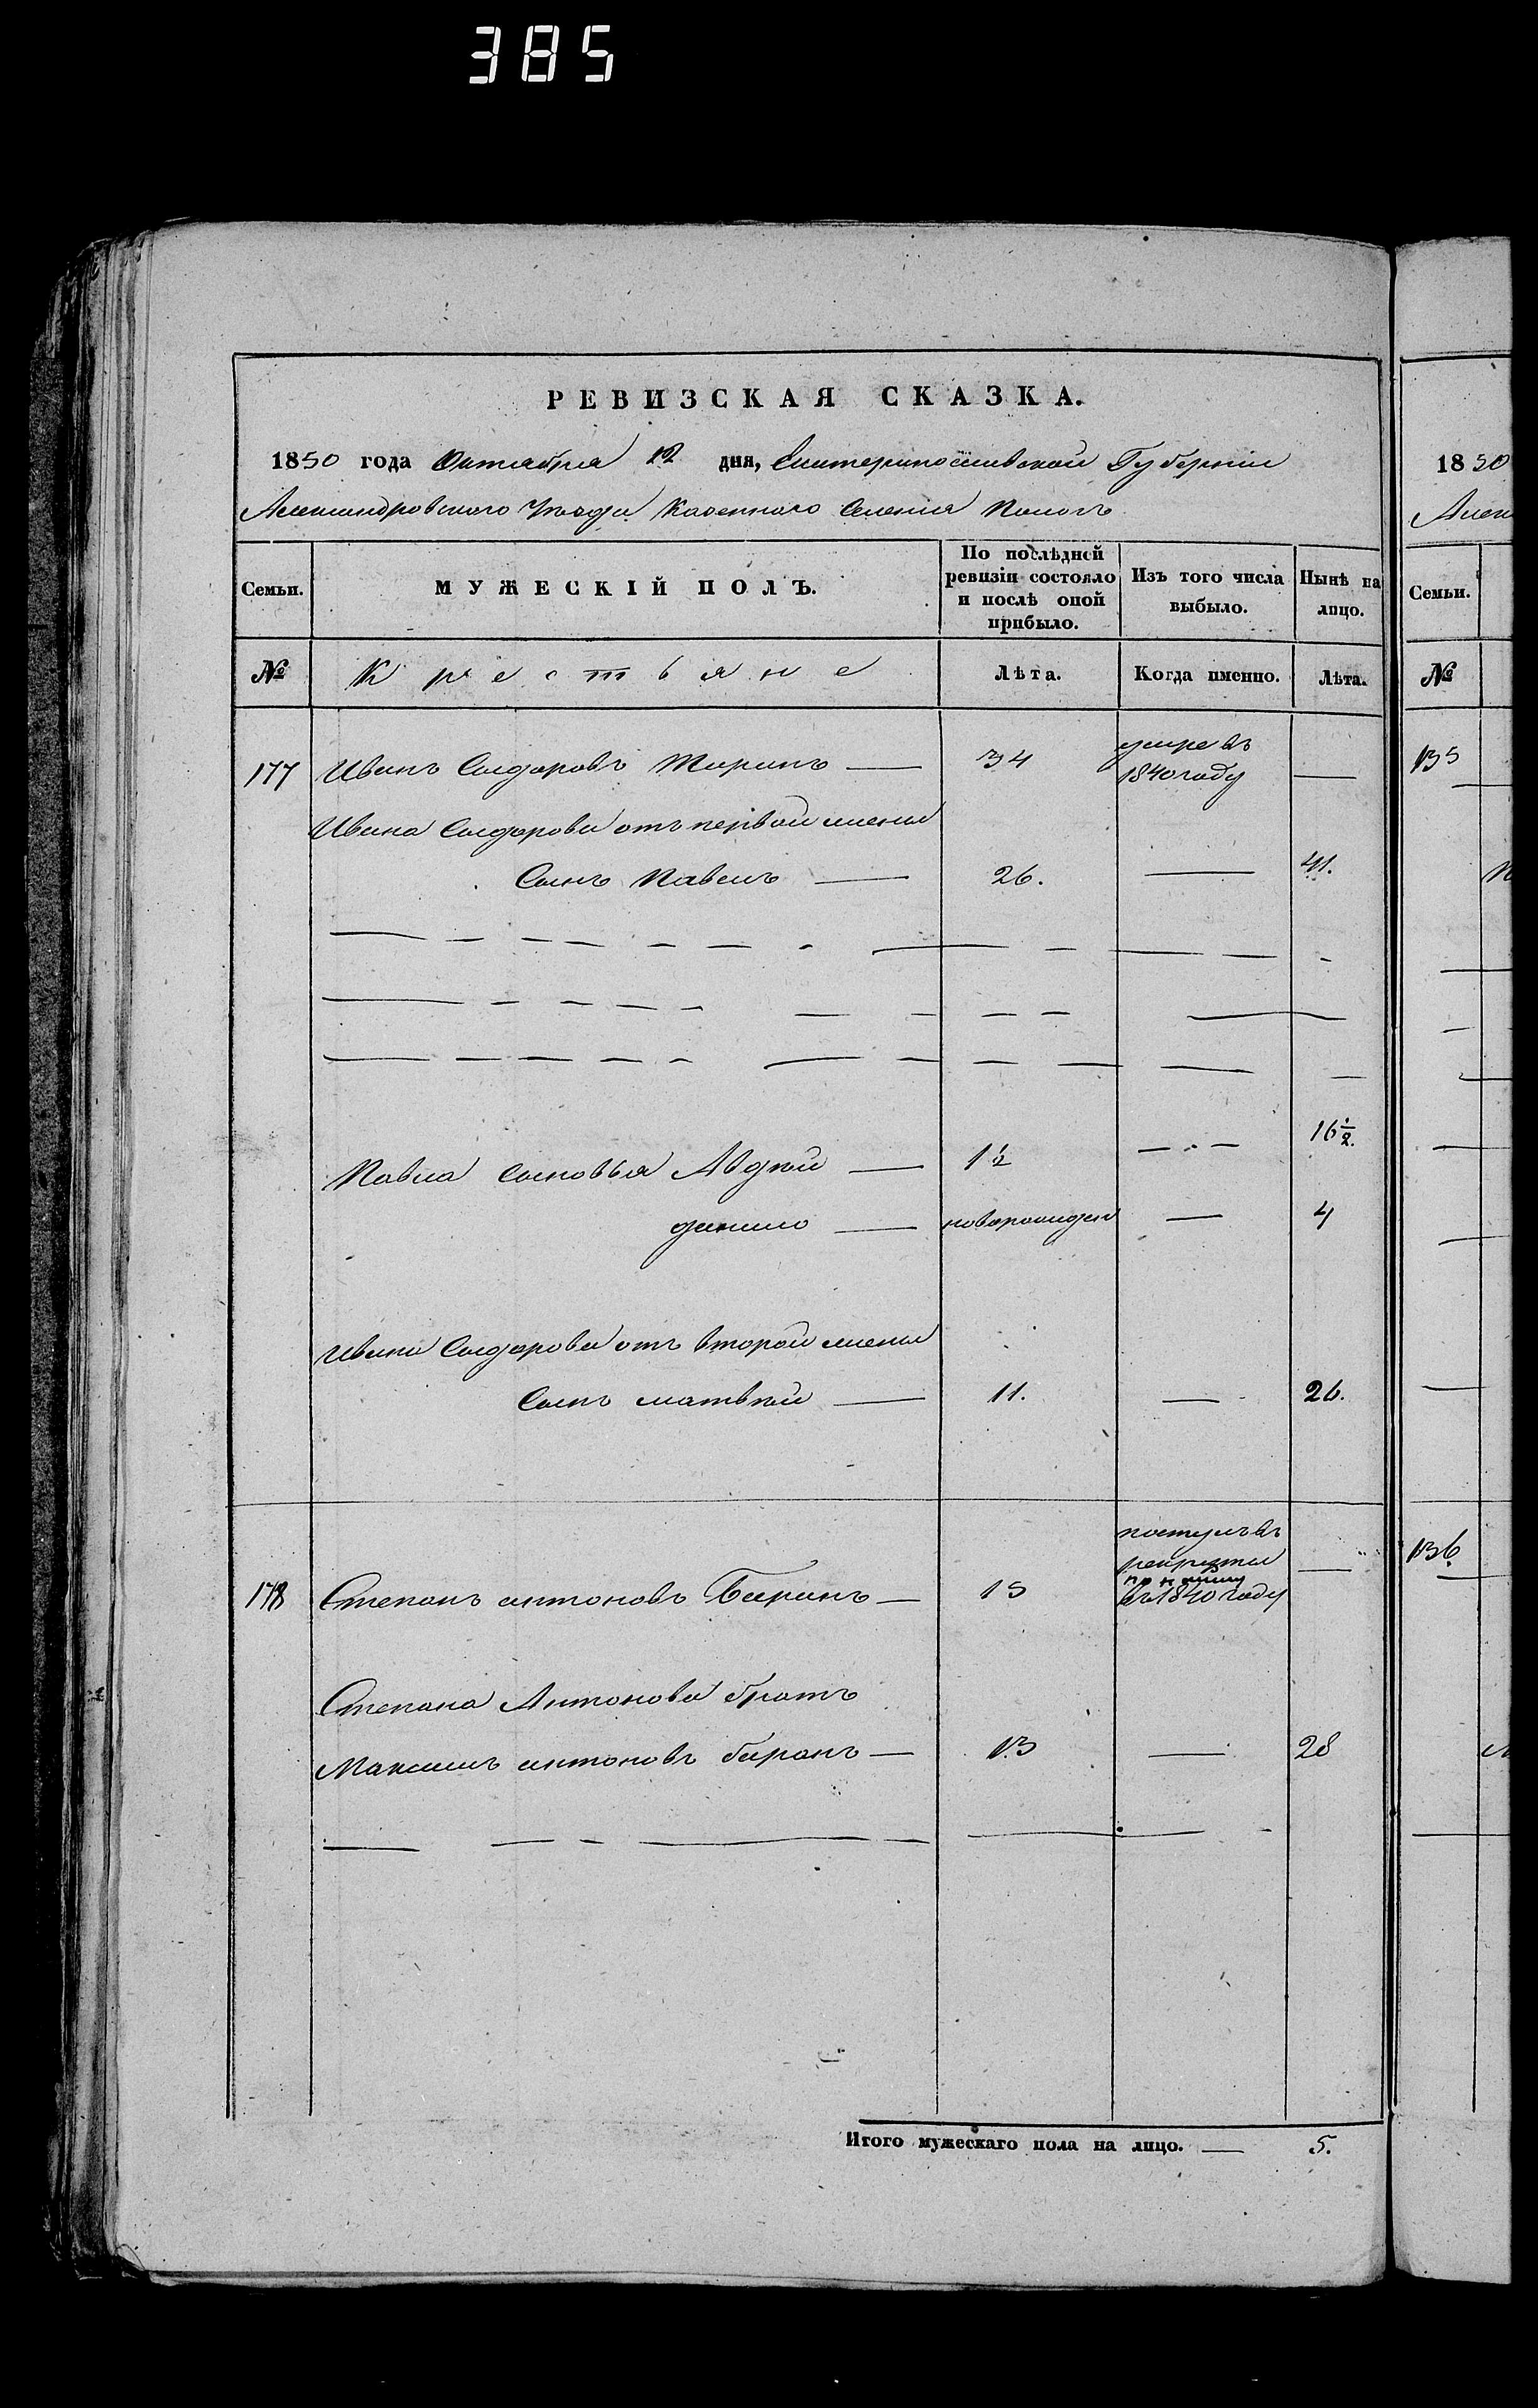 385
РЕВИЗСКАЯ СКАЗКА.
1850 года Октября 12 дня, Екатеринославской Губернии
Александровского Уезда Казенного Селения Пологъ
Семьи.
МУЖЕСКІЙ ПОЛЪ.
По послѣдней ревизіи состояло и послѣ оной прибыло.
Изъ того числа выбыло.
Нынѣ на лицо.
№
Крестьяне
Лѣта.
Когда именно.
Лѣта.
177 Иванъ Сидоровъ — 34 умре въ 1840 году —
Ивана Сидорова отъ первой жены
Сынъ Павелъ — 26. — 41.
Павла сыновья Авдей — 1½ — 16½.
Данило — новорожден — 4
Ивана Сидорова отъ второй жены
Сынъ Матвей — 11. — 26.
178 Степанъ Антоновъ Баранъ — 15 поступ въ рекруты въ 1840 году —
Степана Антонова братъ
Максимъ Антоновъ Баранъ — 13 — 28
Итого мужескаго пола на лицо. — 5.
1850
Семьи.
№
135
136.